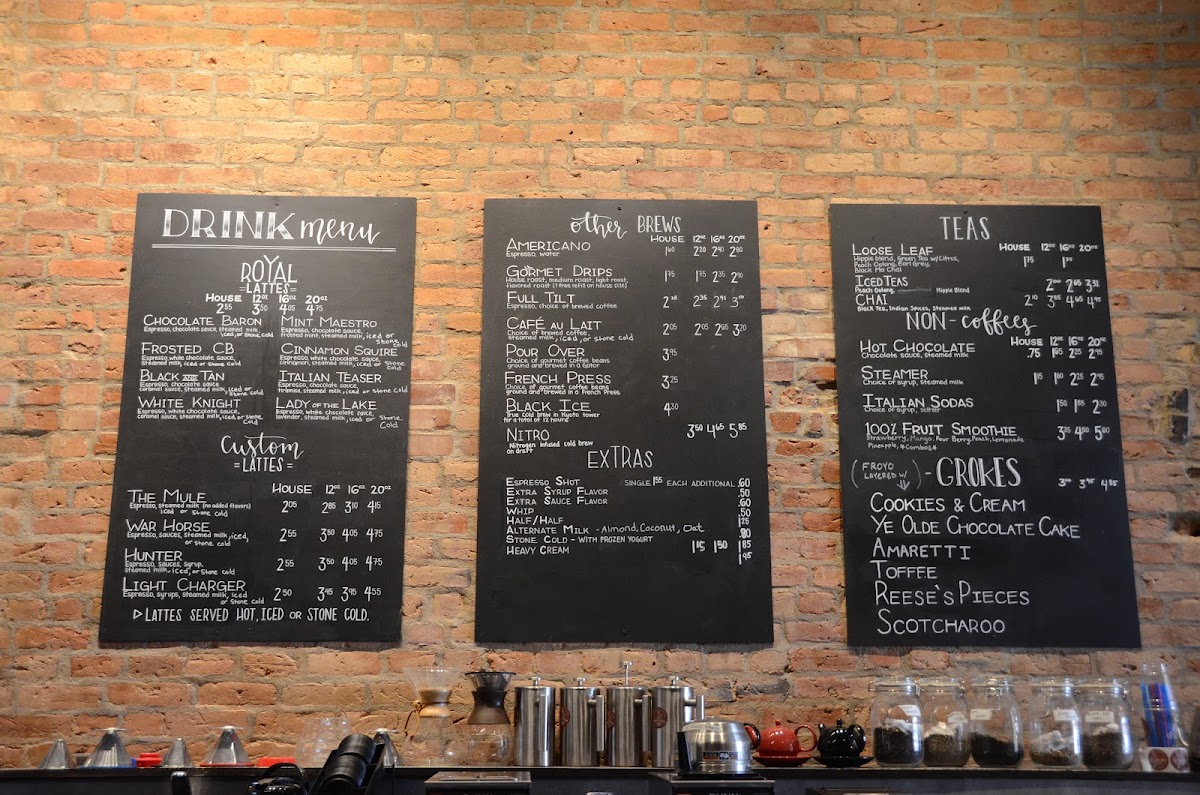 DRINK menu
ROYAL
=LATTES=
HOUSE 12oz 16oz 20oz
2.55 3.50 4.05 4.75
CHOCOLATE BARON
Espresso, chocolate sauce, steamed milk,
iced, or stone cold
MINT MAESTRO
Espresso, chocolate sauce,
frosted mint, steamed milk, iced or
stone cold
FROSTED CB
Espresso, white chocolate sauce,
steamed milk, iced or stone cold
CINNAMON SQUIRE
Espresso, white chocolate sauce,
cinnamon, steamed milk, iced or stone
cold
BLACK AND TAN
Espresso, chocolate sauce,
caramel sauce, steamed milk, iced or
stone cold
ITALIAN TEASER
Espresso, chocolate sauce,
tiramisu, steamed milk, iced or stone cold
WHITE KNIGHT
Espresso, white chocolate sauce,
caramel sauce, steamed milk, iced or stone
cold
LADY OF THE LAKE
Espresso, white chocolate sauce,
lavender, steamed milk, iced or stone
cold
Custom
=LATTES=
HOUSE 12oz 16oz 20oz
THE MULE 2.05 2.85 3.10 4.15
Espresso, steamed milk (no added flavors)
iced or stone cold
WAR HORSE 2.55 3.50 4.05 4.75
Espresso, sauces, steamed milk, iced,
or stone cold
HUNTER 2.55 3.50 4.05 4.75
Espresso, sauces, syrup,
steamed milk, iced, or stone cold
LIGHT CHARGER 2.50 3.45 3.95 4.55
Espresso, syrups, steamed milk, iced
or stone cold
LATTES SERVED HOT, ICED OR STONE COLD.
other BREWS
HOUSE 12oz 16oz 20oz
AMERICANO 1.60 2.20 2.40 2.60
Espresso, water
GORMET DRIPS 1.75 1.95 2.35 2.40
House roast, medium roast, light roast,
flavored roast (1 free refill on house size)
FULL TILT
Espresso, choice of brewed coffee
CAFÉ AU LAIT 2.05 2.05 2.60 3.20
Choice of brewed coffee,
steamed milk, iced, or stone cold
POUR OVER 3.95
Choice of gourmet coffee beans
ground and brewed in a Gator
FRENCH PRESS 3.25
Choice of gourmet coffee beans
ground and brewed in a French Press
BLACK ICE 4.30
True cold brew in Kyoto tower
for a total of 12 hours!
NITRO 3.50 4.65 5.85
Nitrogen infused cold brew
on draft
EXTRAS
ESPRESSO SHOT SINGLE 1.55 EACH ADDITIONAL .60
EXTRA SYRUP FLAVOR .50
EXTRA SAUCE FLAVOR .60
WHIP .50
HALF/HALF 1.25
ALTERNATE MILK - Almond, Coconut, Oat .80
STONE COLD - WITH FROZEN YOGURT 1.15 1.50 1.85
HEAVY CREAM 1.95
TEAS
HOUSE 12oz 16oz 20oz
LOOSE LEAF 1.75 1.95
Hippie blend, Green Tea w/Citrus,
Peach Oolong, Earl Grey,
Black Ma Chai
ICED TEAS 2.00 2.65 3.31
Peach Oolong, Hippie Blend
CHAI 2.10 3.85 4.65 4.95
Black Tea, Indian Sauces, Steamed milk
NON-coffees
HOUSE 12oz 16oz 20oz
HOT CHOCOLATE .75 1.65 2.25 2.45
Chocolate sauce, steamed milk
STEAMER 1.15 1.60 2.25 2.45
Choice of syrup, steamed milk
ITALIAN SODAS 1.50 1.85 2.30
Choice of syrup, seltzer
100% FRUIT SMOOTHIE 3.35 4.80 5.60
Strawberry, Mango, Four Berry, Peach, Lemonade
Pineapple, *Combos*
(FROYO LAYERED w/) - GROKES 3.00 3.95 4.85
COOKIES & CREAM
YE OLDE CHOCOLATE CAKE
AMARETTI
TOFFEE
REESE'S PIECES
SCOTCHAROO